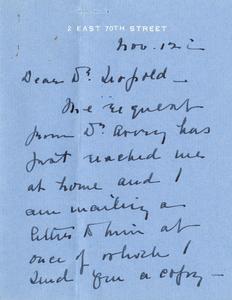 2 EAST 70TH STREET
Nov. 12
Dear Dr. Leopold –
The request
from Dr. Avery has
just reached me
at home and I
am mailing a
letter to him at
once of which I
send you a copy –